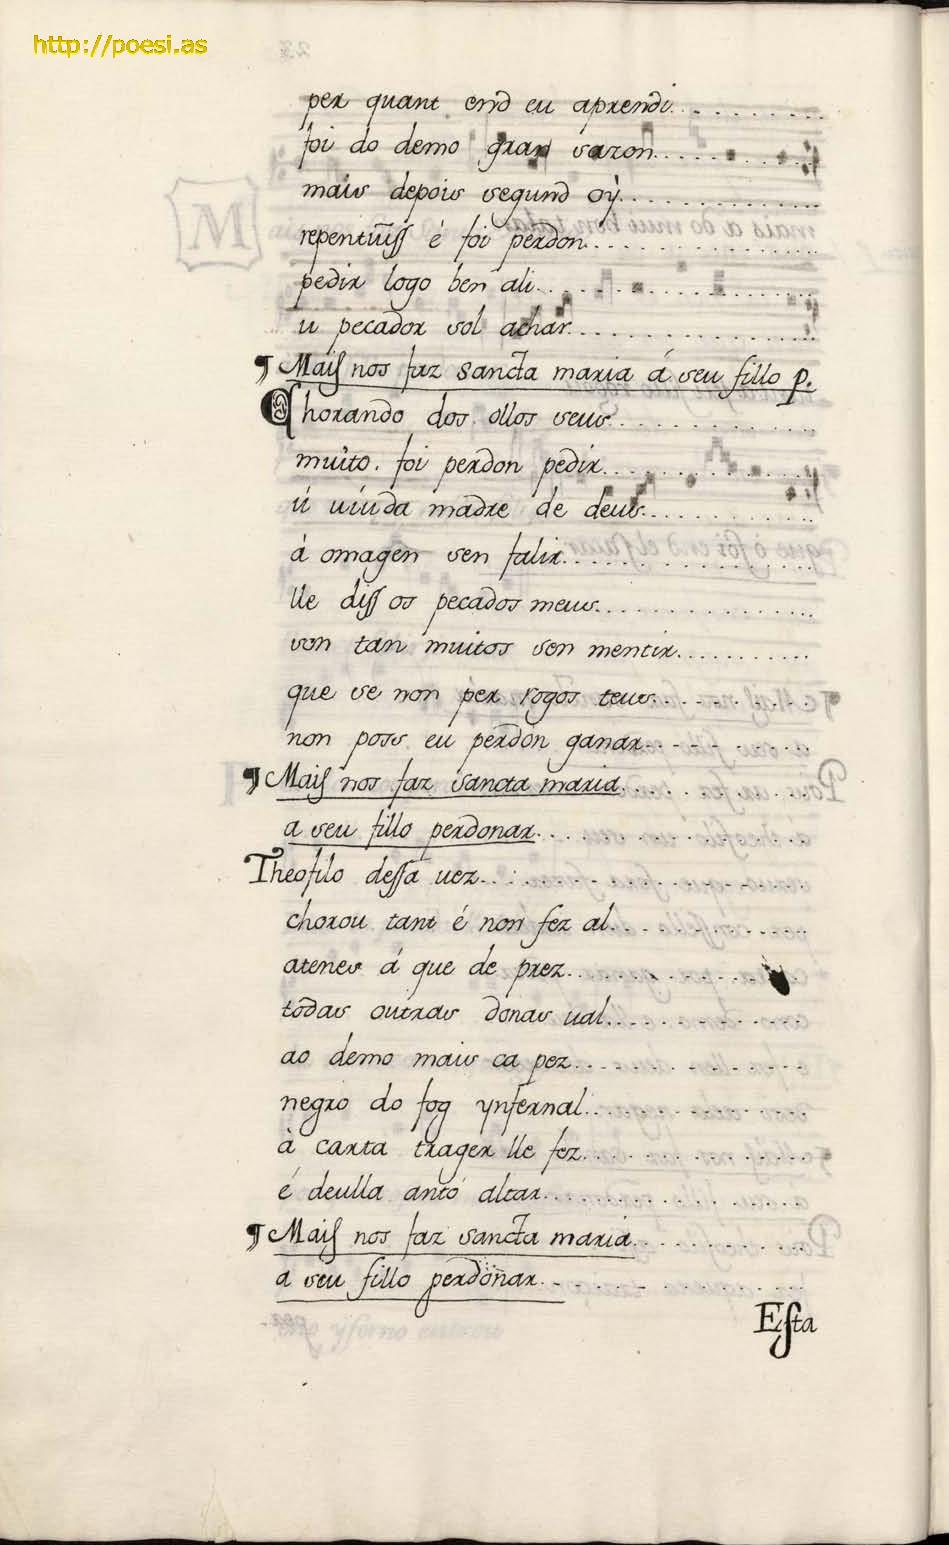 http://poesi.as
per quant end eu aprendi
foi do demo gran sazon
mais depois segund oỳ
repentiũss é foi perdon
pedir logo ben ali
u pecador sol achar
¶ Mais nos faz sancta maria á seu fillo p.
Chorando dos ollos seus
muito. foi perdon pedir
ú uiuda madre de deus
á omagen sen falir
lle diss os pecados meus
son tan muitos sen mentir
que se non per rogos teus
non poss eu perdon ganar
¶ Mais nos faz sancta maria
a seu fillo perdonar
Theofilo dessa uez
chorou tant é non fez al
atenes á que de prez
todas outras donas ual
ao demo mais ca pez
negro do fog ynfernal
à carta trager lle fez
é deulla antó altar
¶ Mais nos faz sancta maria
a seu fillo perdonar
Esta